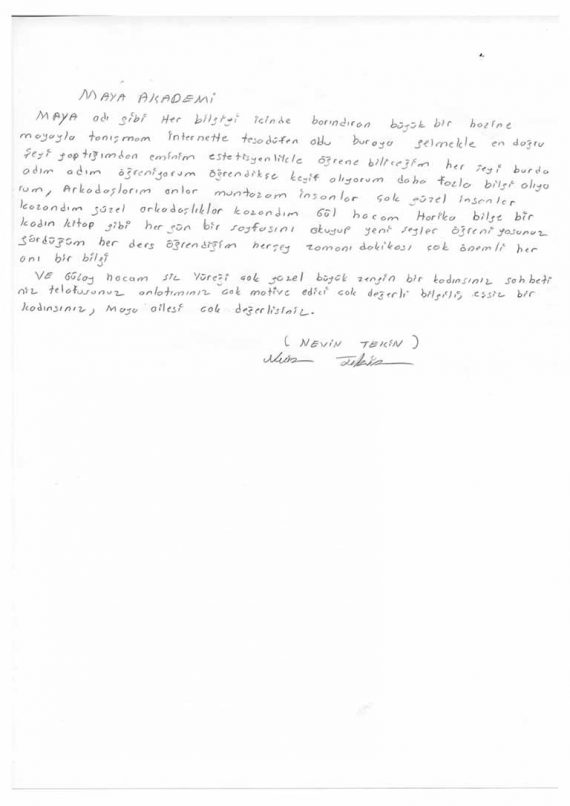 MAYA AKADEMİ
MAYA adı gibi Her bilgiyi içinde barındıran büyük bir hazine
mayayla tanışmam internette tesadüfen oldu buraya gelmekle en doğru
şeyi yaptığımdan eminim estetisyenlikle öğrene bileceğim her şeyi burda
adım adım öğreniyorum öğrendikçe keyif alıyorum daha fazla bilgi alıyo
rum, Arkadaşlarım onlar muntazam insanlar çok güzel insanler
kazandım güzel arkadaşlıklar kazandım Gül hocam Harika bilge bir
kadın kitap gibi her gün bir sayfasını okuyup yeni şeyler öğreni yosunuz
gördüğüm her ders öğrendiğim herşey zamanı dakikası çok önemli her
anı bir bilgi
VE Gülay hocam siz Yüreği çok güzel büyük zengin bir kadınsınız sohbeti
niz telafusunuz anlatımınız çok motive edici çok değerli bilgili, eşsiz bir
kadınsınız, Maya ailesi çok değerlisiniz.
( NEVİN TEKİN )
Nevin Tekin